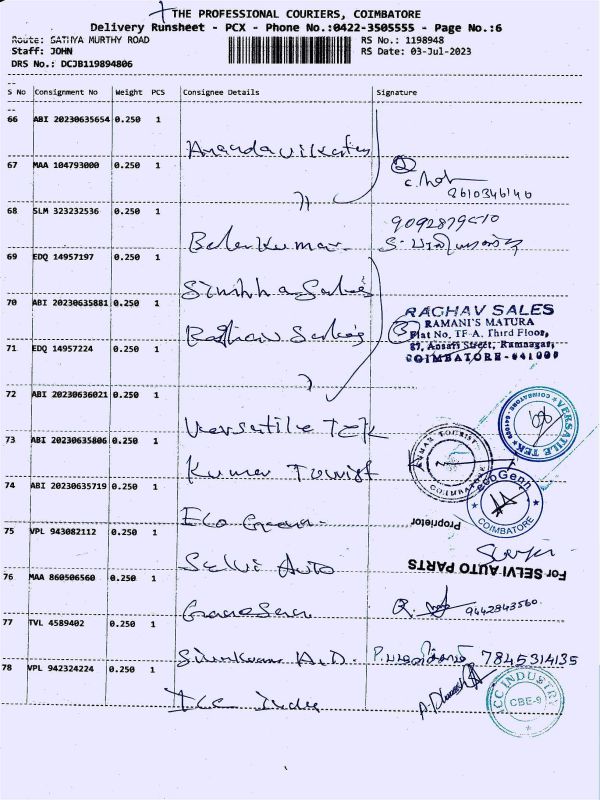 THE PROFESSIONAL COURIERS, COIMBATORE
Delivery Runsheet - PCX - Phone No.:0422-3505555 - Page No.:6
Route: SATHYA MURTHY ROAD RS No.: 1198948
Staff: JOHN RS Date: 03-Jul-2023
DRS No.: DCJB119894806
S No Consignment No Weight PCS Consignee Details Signature
66 ABI 20230635654 0.250 1
67 MAA 104793000 0.250 1
8610346140
68 SLM 323232536 0.250 1
Balan Kumar
69 EDQ 14957197 0.250 1
Simhha Sales
70 ABI 20230635881 0.250 1
Raghav Sales
RAGHAV SALES
RAMANI'S MATURA
Flat No, TF-A, Third Floor,
87, Ansari Street, Ramnagar,
COIMBATORE - 641009
71 EDQ 14957224 0.250 1
72 ABI 20230636021 0.250 1
Versatile TEK
VERSATILE TEK
73 ABI 20230635806 0.250 1
Kumar Tourist
KUMAR TOURIST
COIMBATORE
74 ABI 20230635719 0.250 1
Eco Green
COIMBATORE
Proprietor
75 VPL 943082112 0.250 1
Selvi Auto
For SELVI AUTO PARTS
76 MAA 860506560 0.250 1
9442843560
77 TVL 4589402 0.250 1
7845314135
78 VPL 942324224 0.250 1
ICC India
ICC INDUSTRY
CBE-9